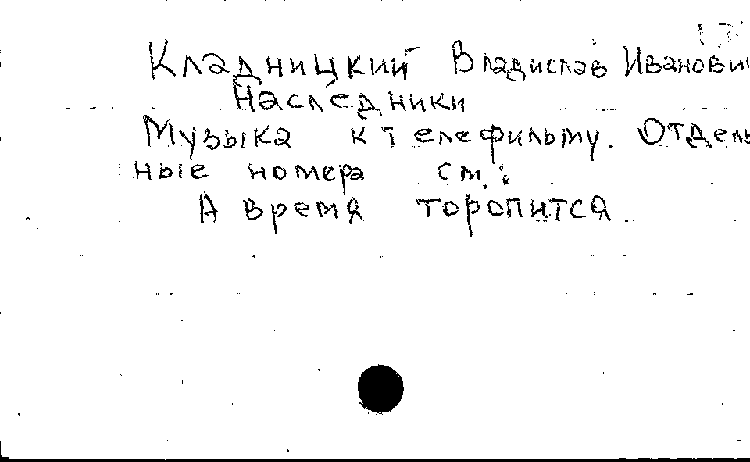 Кладницкий Владислав Иванови
Наследники
Музыка к телефильму. Отдель
ные номера см.:
А время торопится